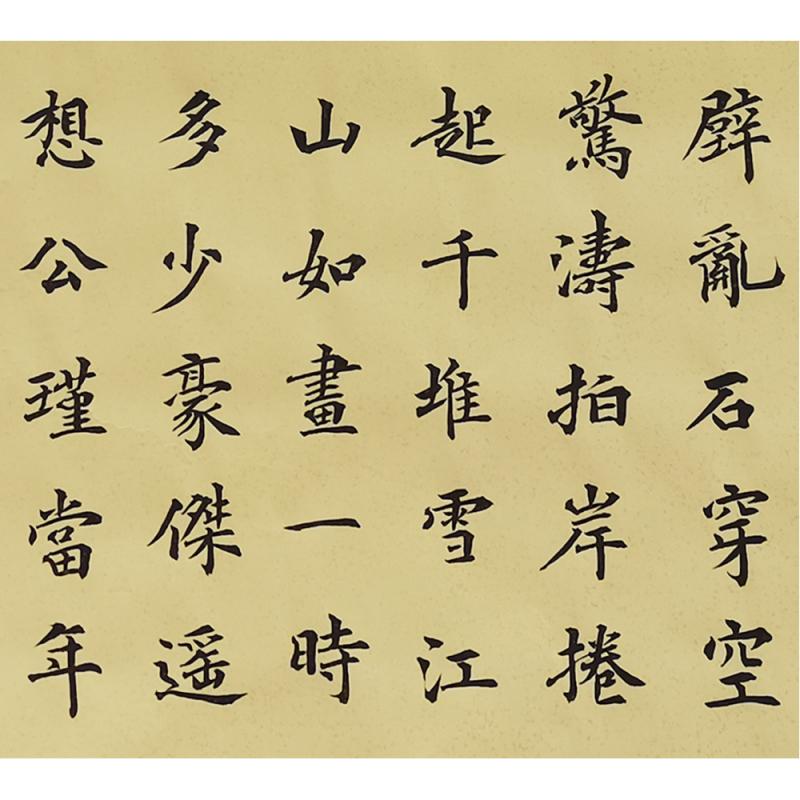 壁亂石穿空
驚濤拍岸捲
起千堆雪江
山如畫一時
多少豪傑遥
想公瑾當年